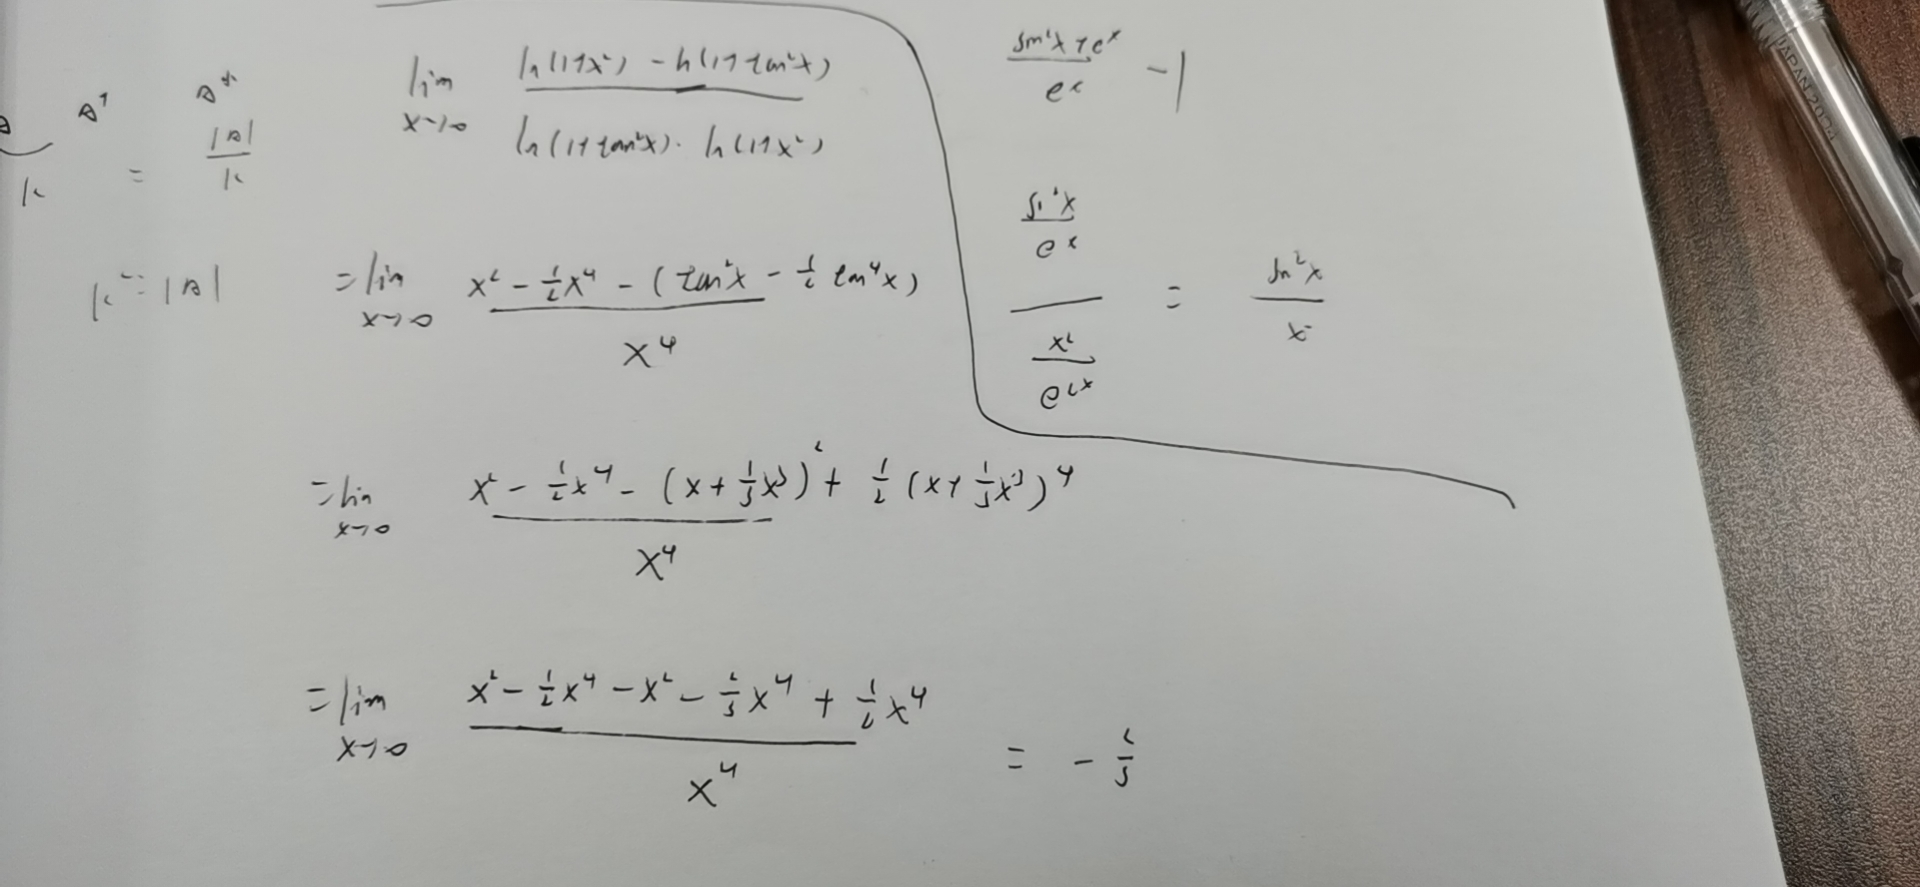 lim x→0 (ln(1+x²) - ln(1+tan²x)) / (ln(1+tan²x)·ln(1+x²))
= lim x→0 (x² - 1/2 x⁴ - (tan²x - 1/2 tan⁴x)) / x⁴
= lim x→0 (x² - 1/2 x⁴ - (x + 1/3 x³)² + 1/2 (x + 1/3 x³)⁴) / x⁴
= lim x→0 (x² - 1/2 x⁴ - x² - 2/3 x⁴ + 1/2 x⁴) / x⁴ = - 2/3
(sin²x + eˣ) / eˣ - 1
(sin²x / eˣ) / (x² / e²ˣ) = sin²x / x²
= |A| / k
k² = |A|
JAPAN